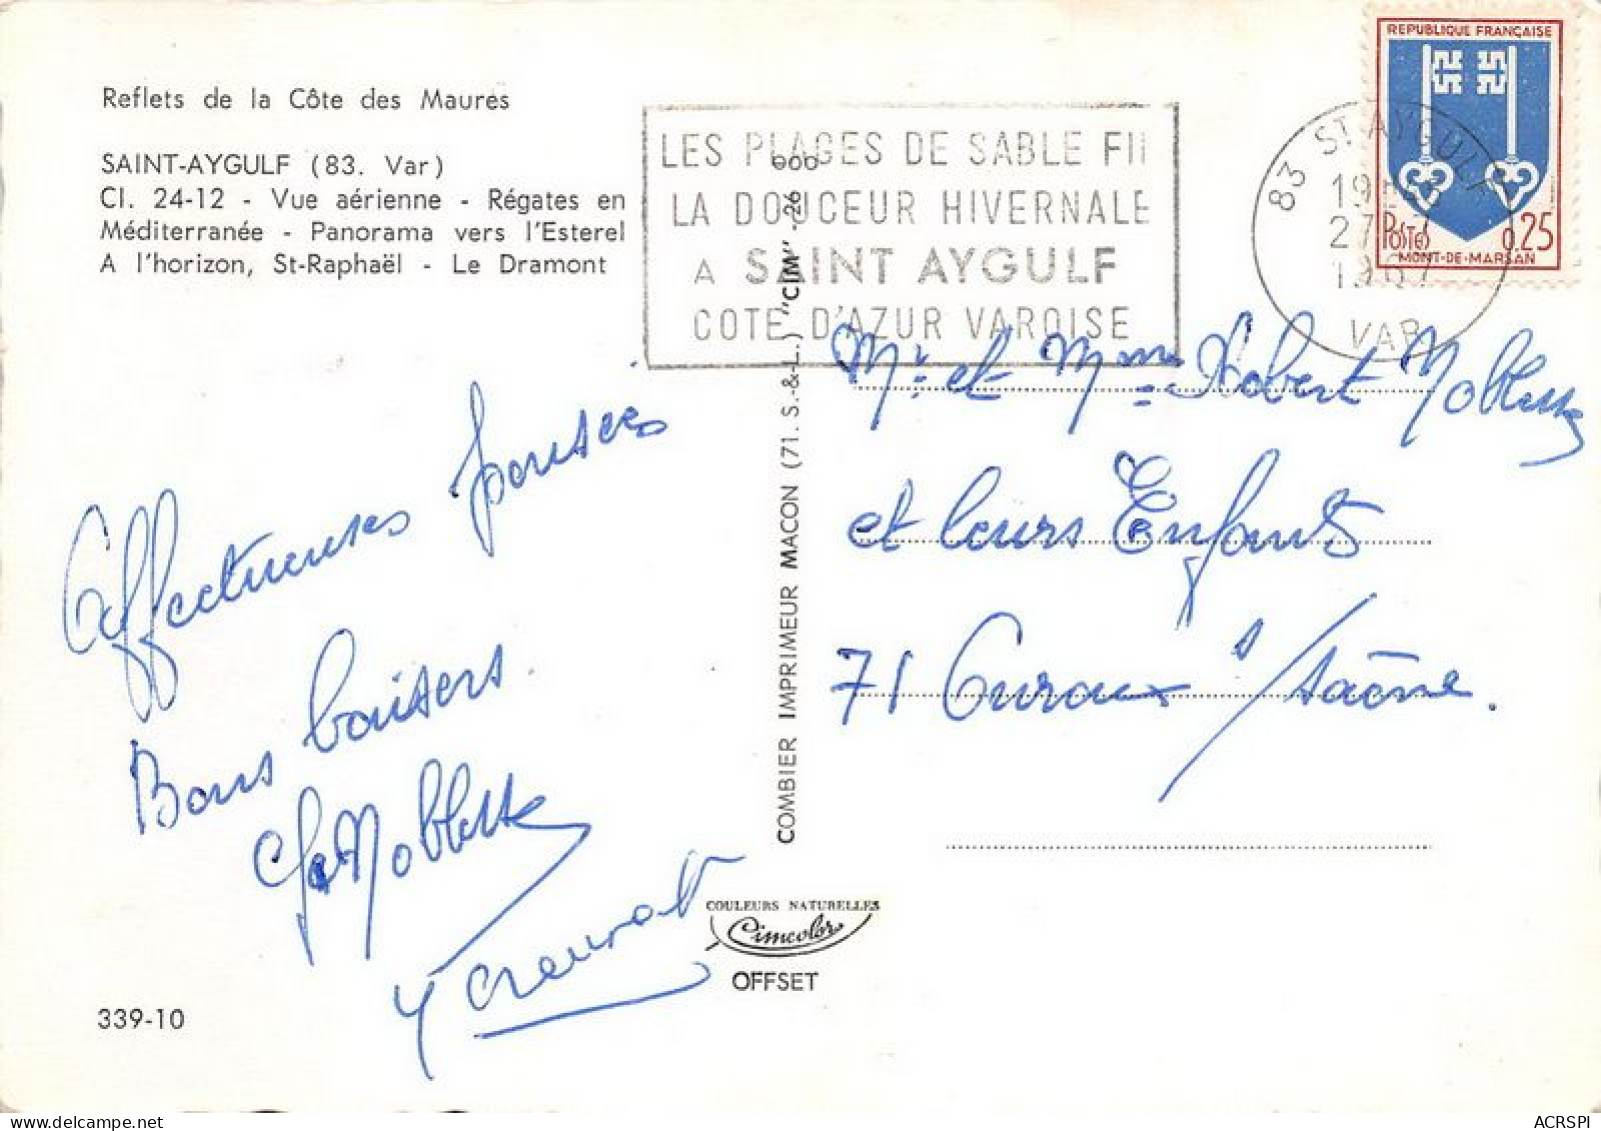 Reflets de la Côte des Maures
SAINT-AYGULF (83. Var)
Cl. 24-12 - Vue aérienne - Régates en
Méditerranée - Panorama vers l'Esterel
A l'horizon, St-Raphaël - Le Dramont
LES PLAGES DE SABLE FI
LA DOUCEUR HIVERNALE
A SAINT AYGULF
COTE D'AZUR VAROISE
REPUBLIQUE FRANÇAISE
POSTES 0,25
MONT-DE-MARSAN
83 ST AYGULF
27-7
1967
VAR
Affectueuses pensées
Bons baisers.
Noblesse
COMBIER IMPRIMEUR MACON (71. S.-&-L.) "CIM"
Mr. et Mme Robert Noblesse
et leurs Enfants
71 Ouroux s/saône.
COULEURS NATURELLES
Cimcolor
OFFSET
339-10
ACRSPI